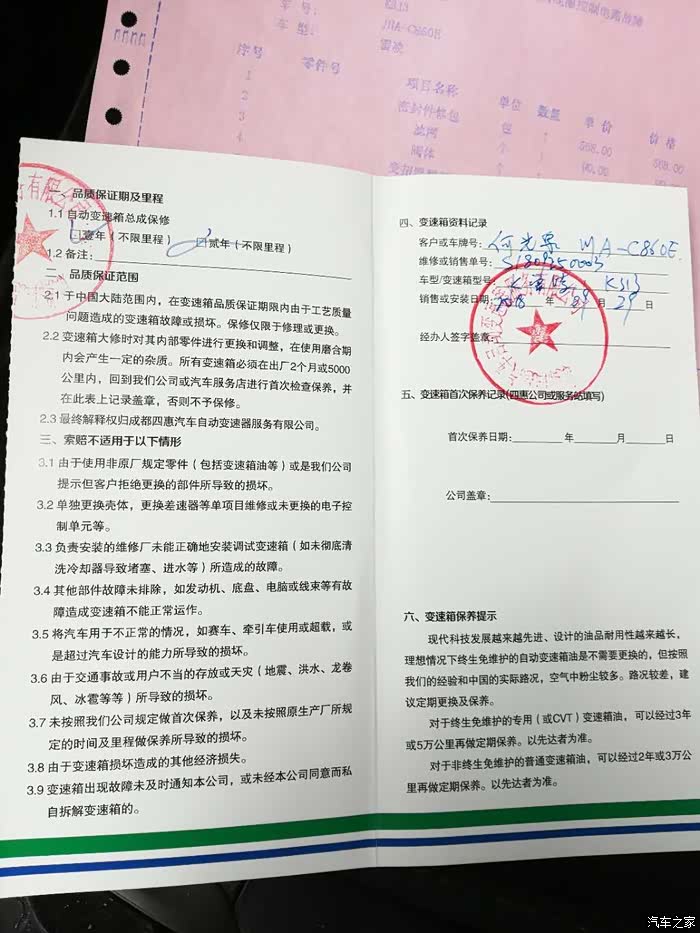 车号：
车型：
JHA-C860H
雷凌
序号
零件号
项目名称
单位
数量
单价
价格
1
密封件修包
包
568.00
568.00
2
滤网
个
90.00
3
阀体
个
4
有限公司
一、品质保证期及里程
1.1 自动变速箱总成保修
□壹年（不限里程） □贰年（不限里程）
1.2 备注：
二、品质保证范围
2.1 于中国大陆范围内，在变速箱品质保证期限内由于工艺质量
问题造成的变速箱故障或损坏。保修仅限于修理或更换。
2.2 变速箱大修时对其内部零件进行更换和调整，在使用磨合期
内会产生一定的杂质。所有变速箱必须在出厂2个月或5000
公里内，回到我们公司或汽车服务店进行首次检查保养，并
在此表上记录盖章，否则不予保修。
2.3 最终解释权归成都四惠汽车自动变速器服务有限公司。
三、索赔不适用于以下情形
3.1 由于使用非原厂规定零件（包括变速箱油等）或是我们公司
提示但客户拒绝更换的部件所导致的损坏。
3.2 单独更换壳体，更换差速器等单项目维修或未更换的电子控
制单元等。
3.3 负责安装的维修厂未能正确地安装调试变速箱（如未彻底清
洗冷却器导致堵塞、进水等）所造成的故障。
3.4 其他部件故障未排除，如发动机、底盘、电脑或线束等有故
障造成变速箱不能正常运作。
3.5 将汽车用于不正常的情况，如赛车、牵引车使用或超载，或
是超过汽车设计的能力所导致的损坏。
3.6 由于交通事故或用户不当的存放或天灾（地震、洪水、龙卷
风、冰雹等等）所导致的损坏。
3.7 未按照我们公司规定做首次保养，以及未按照原生产厂所规
定的时间及里程做保养所导致的损坏。
3.8 由于变速箱损坏造成的其他经济损失。
3.9 变速箱出现故障未及时通知本公司，或未经本公司同意而私
自拆解变速箱的。
四、变速箱资料记录
客户或车牌号：何光 JHA-C860E
维修或销售单号：
车型/变速箱型号： K313
销售或安装日期：2018年 09月29日
经办人签字盖章：
五、变速箱首次保养记录(四惠公司或服务站填写)
首次保养日期： 年 月 日
公司盖章：
六、变速箱保养提示
现代科技发展越来越先进、设计的油品耐用性越来越长，
理想情况下终生免维护的自动变速箱油是不需要更换的，但按照
我们的经验和中国的实际路况，空气中粉尘较多。路况较差，建
议定期更换及保养。
对于终生免维护的专用（或CVT）变速箱油，可以经过3年
或5万公里再做定期保养。以先达者为准。
对于非终生免维护的普通变速箱油，可以经过2年或3万公
里再做定期保养。以先达者为准。
汽车之家